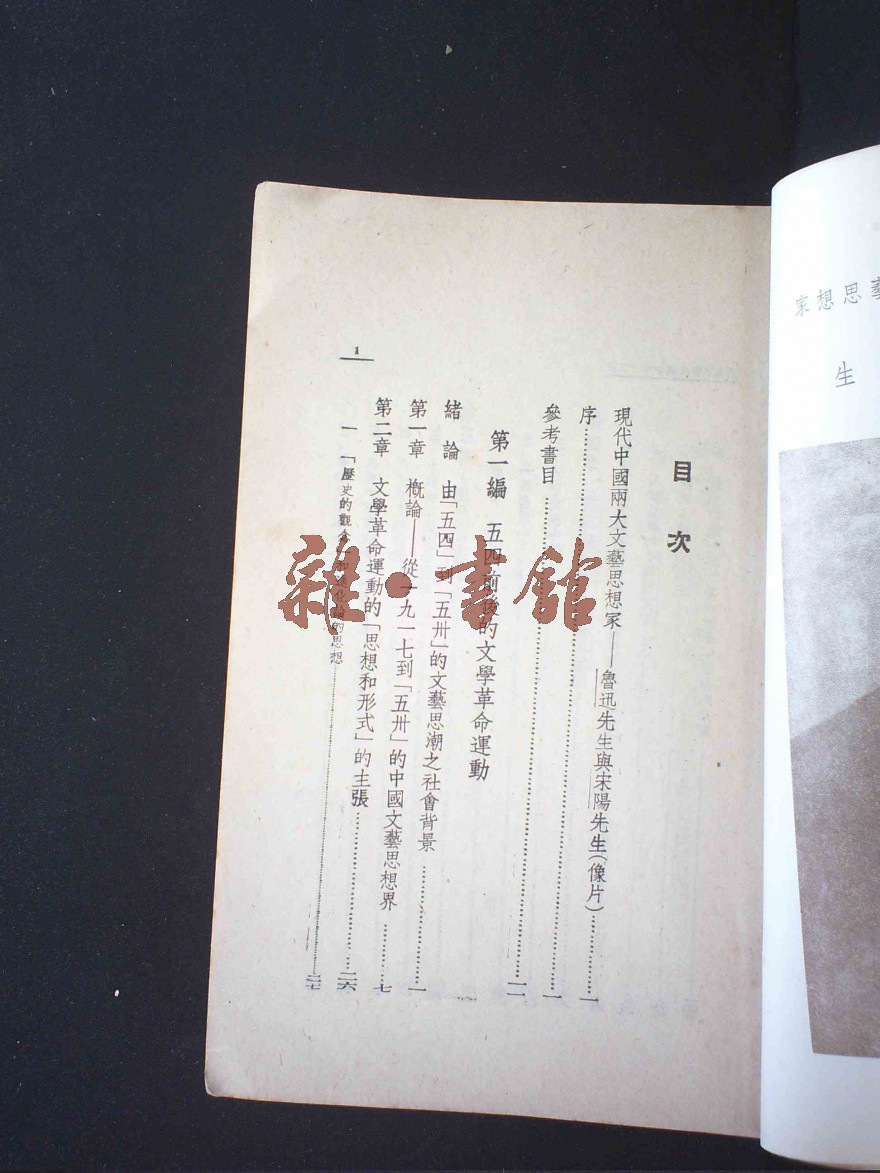 藝思想家
生
目次
現代中國兩大文藝思想家——魯迅先生與宋陽先生(像片)……一
序……一
參考書目……一一
第一編 五四前後的文學革命運動
緒論 由「五四」到「五卅」的文藝思潮之社會背景……一
第一章 概論——從一九一七到「五卅」的中國文藝思想界……七
第二章 文學革命運動的「思想和形式」的主張……二六
一 「歷史的觀念」和進化論的思想……二七
1
雜·書館